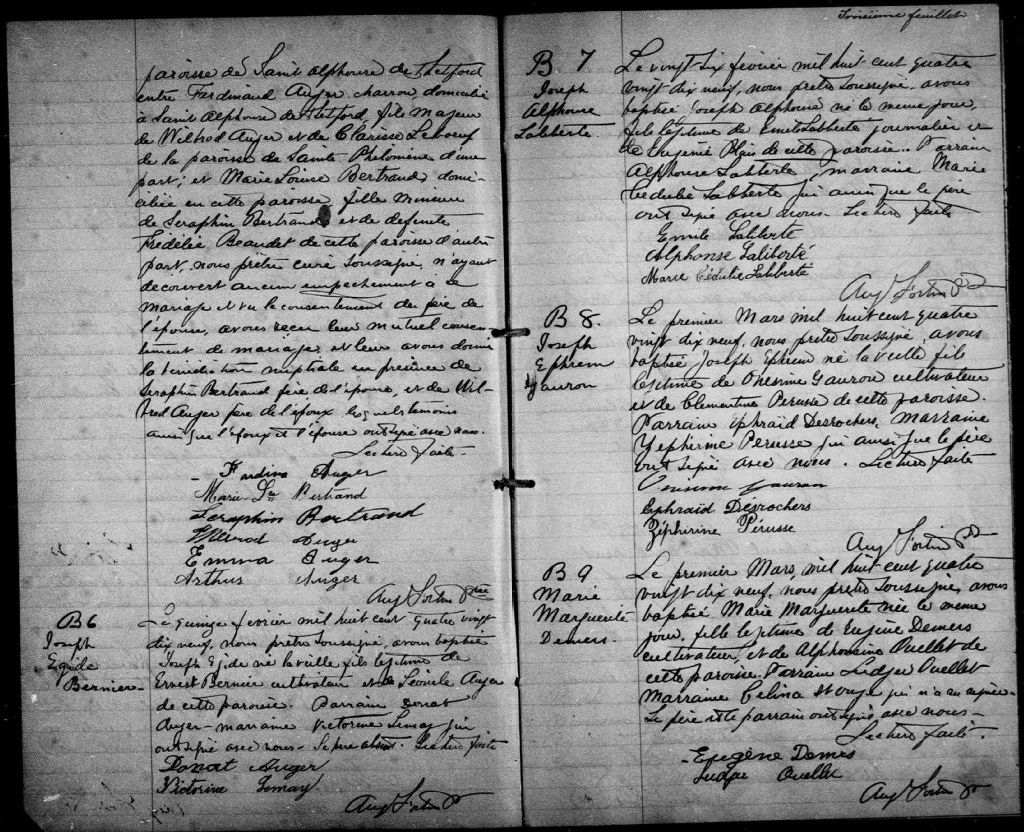 paroisse de Saint Alphonse de Thetford
entre Ferdinand Auger charron domicilié
à Saint Alphonse de Thetford, fils majeur
de Wilfrod Auger et de Clarisse Leboeuf
de la paroisse de Sainte Philomène d'une
part; et Marie Louise Bertrand domi-
ciliée en cette paroisse fille mineure
de Seraphin Bertrand et de defunte
Fidélie Beaudet de cette paroisse d'autre
part, nous prêtre curé soussigné, n'ayant
découvert aucun empechement à ce
mariage et vu le consentement du père de
l'épouse, avons reçu leur mutuel consen-
tement de mariage, et leur avons donné
la benediction nuptiale en présence de
Seraphin Bertrand père de l'épouse, et de Wil-
frod Auger père de l'époux lesquels temoins
ainsi que l'époux et l'épouse ont signé avec nous.
Lecture faite.
Fardino Auger
Marie Lse Bertrand
Seraphin Bertrand
Auger
Emma Auger
Arthur Auger
Aug Fortin Ptre
B 6
Joseph
Egide
Bernier
Le quinze février mil huit cent quatre vingt
dix neuf, nous prêtre soussigné, avons baptisé
Joseph Egide né la veille fils légitime de
Ernest Bernier cultivateur et de Léonile Auger
de cette paroisse. Parrain Donat
Auger - marraine Victorine Lemay qui
ont signé avec nous - Le père absent. Lecture faite
Donat Auger
Victorine Lemay
Aug Fortin Pt
Troisième feuillet
B 7
Joseph
Alphonse
Laliberté
Le vingt six février mil huit cent quatre
vingt dix neuf, nous prêtre soussigné, avons
baptisé Joseph Alphonse né le meme jour,
fils légitime de Emile Laliberté journalier et
de Eugénie Blais de cette paroisse. Parrain
Alphonse Laliberté, marraine Marie
Cédulie Laliberté qui ainsi que le père
ont signé avec nous. Lecture faite
Emile Laliberté
Alphonse Laliberté
Marie Cédulie Laliberté
Aug Fortin Pt
B 8.
Joseph
Ephrem
Gauron
Le premier Mars mil huit cent quatre
vingt dix neuf, nous prêtre soussigné, avons
baptisé Joseph Ephrem né la veille fils
légitime de Onesime Gauron cultivateur
et de Clementine Perusse de cette paroisse.
Parrain Ephraid Desrochers, Marraine
Zephirine Perusse qui ainsi que le père
ont signé avec nous. Lecture faite
Onisime Gauron
Ephraïd Desrochers
Zéphirine Pérusse
Aug Fortin Pt
B 9
Marie
Marguerite
Demers.
Le premier Mars, mil huit cent quatre
vingt dix neuf, nous prêtre soussigné, avons
baptisé Marie Marguerite née le meme
jour, fille légitime de Eugène Demers
cultivateur, et de Alphonsine Ouellet de
cette paroisse. Parrain Ludger Ouellet
Marraine Celina St Onge qui n'a su signer.
Le père et le parrain ont signé avec nous -
Lecture faite.
Eugène Demers
Ludger Ouellet
Aug Fortin Pt